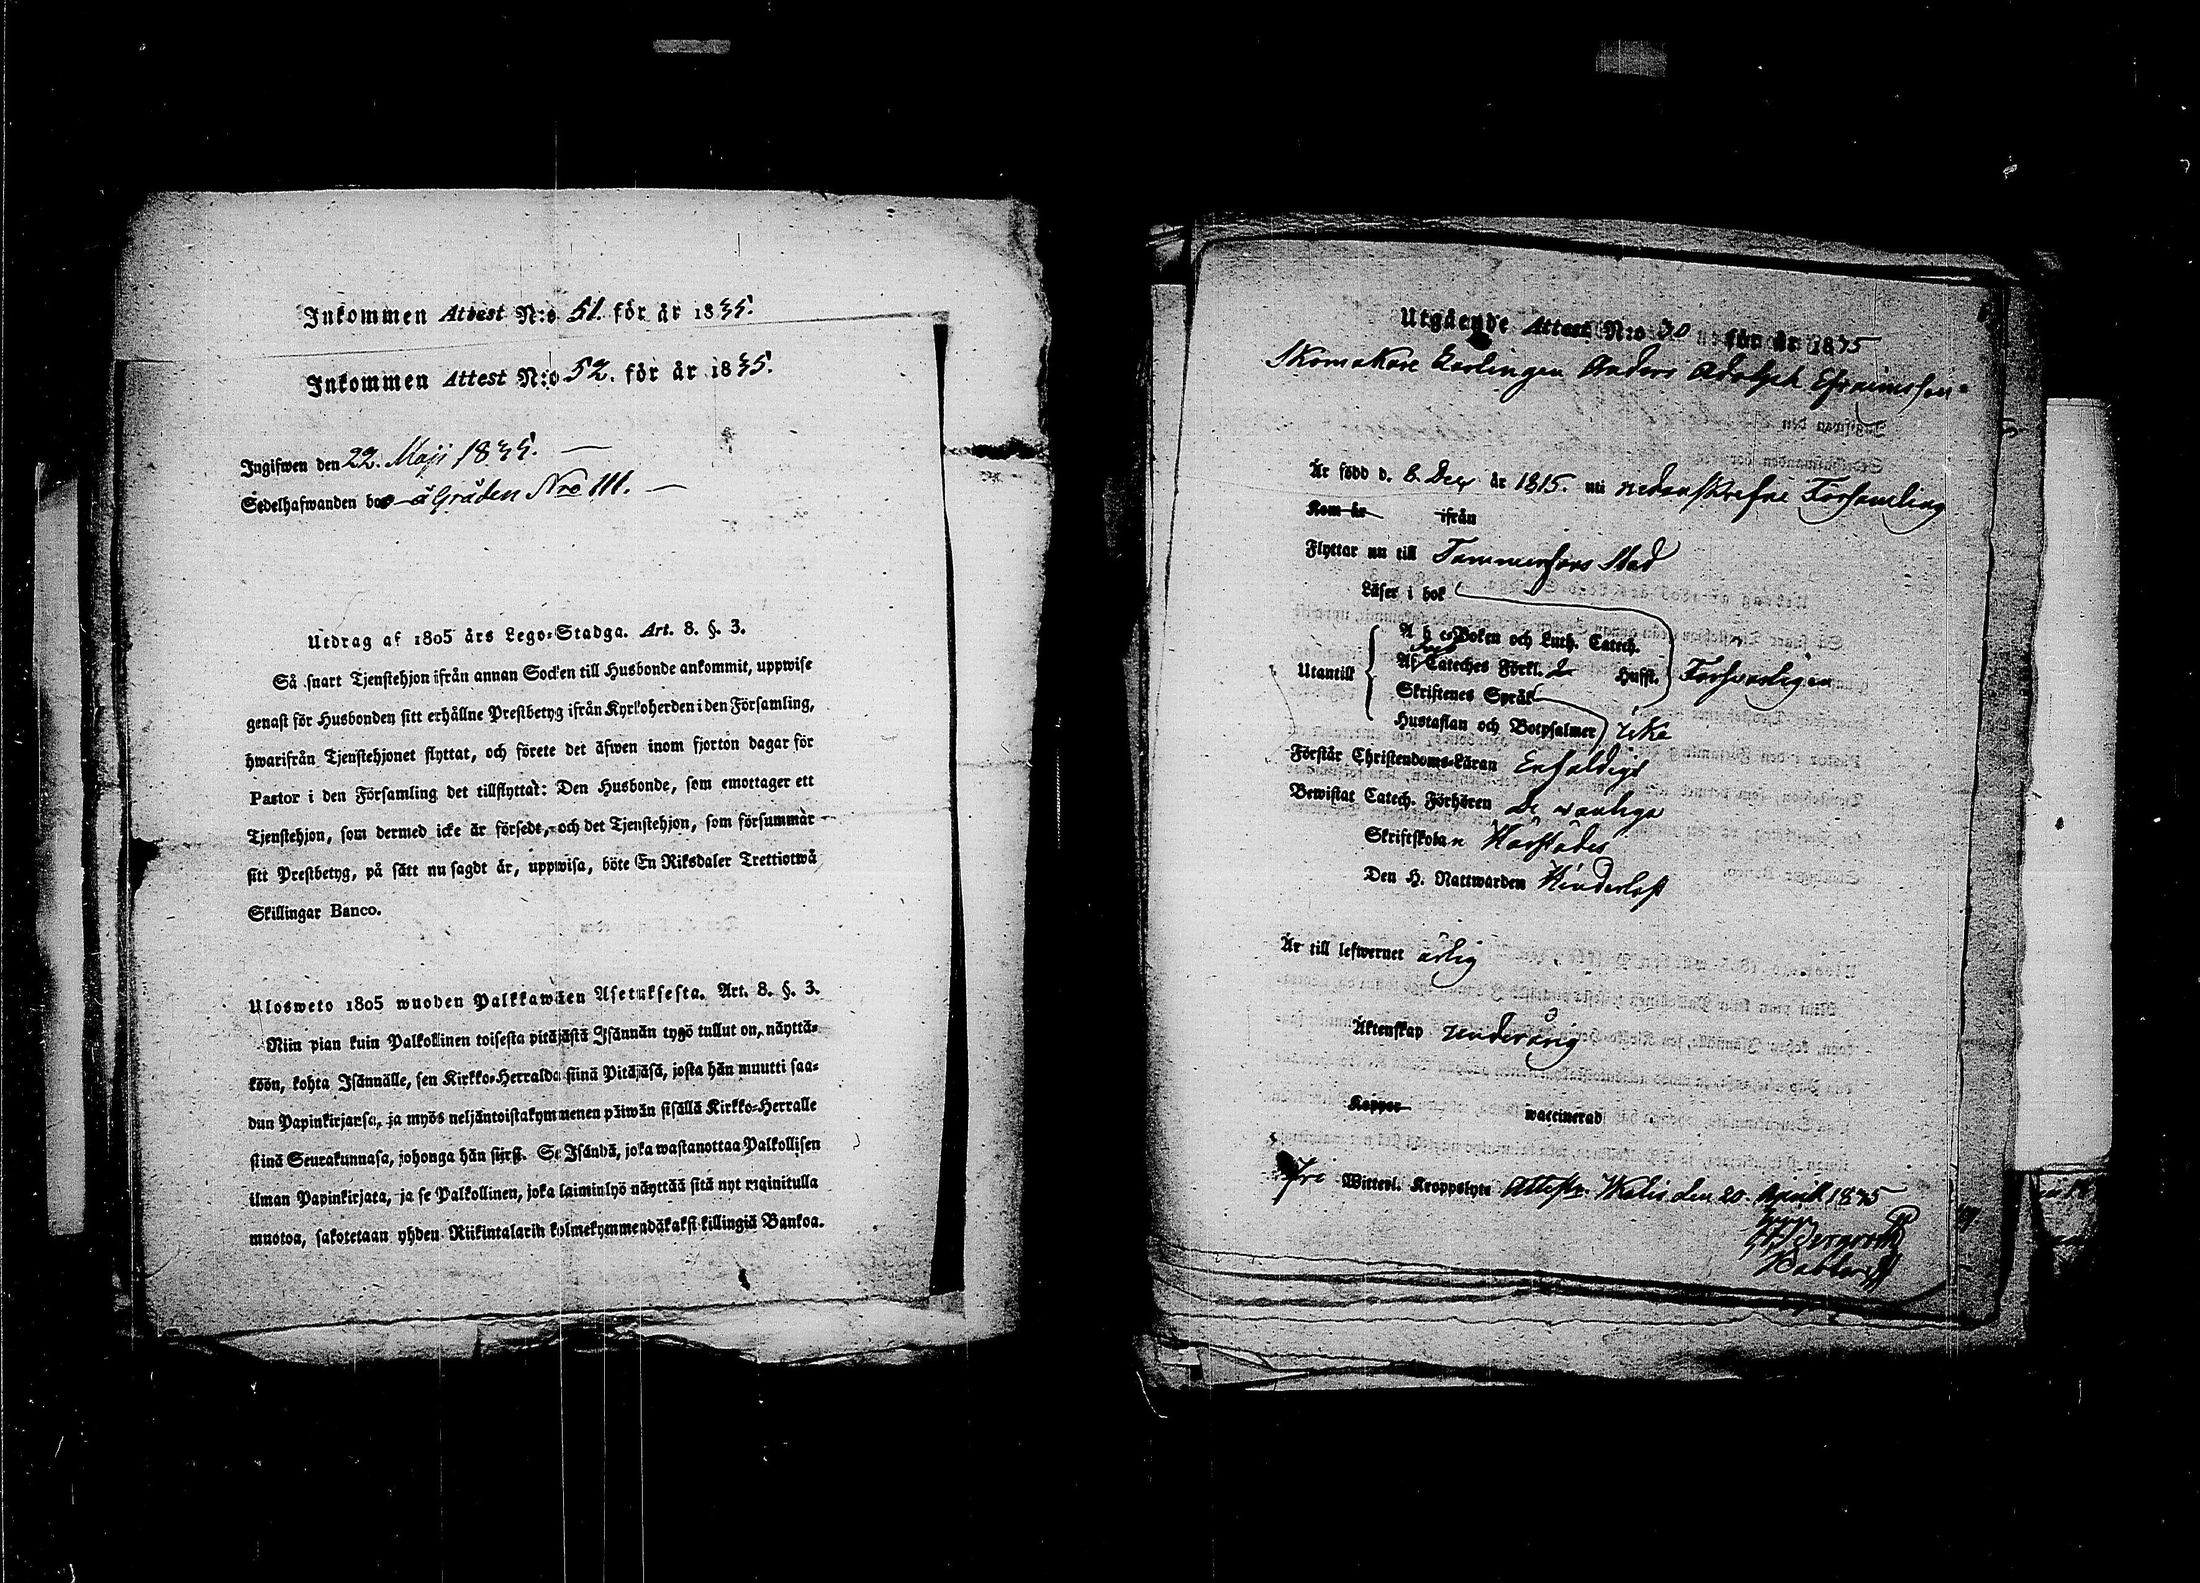 Inkommen Attest N:o 51. för år 1835.
Inkommen Attest N:o 52. för år 1835.
Ingifwen den 22. Maji 1835.
Sedelhafwanden bor å Gråden Nro 111.
Utdrag af 1805 års Lego-Stadga. Art. 8. §. 3.
Så snart Tjenstehjon ifrån annan Socken till Husbonde ankommit, uppwise
genast för Husbonden sitt erhållne Prestbetyg ifrån Kyrkoherden i den Församling,
hwarifrån Tjenstehjonet flyttat, och förete det äfwen inom fjorton dagar för
Pastor i den Församling det tillflyttat: Den Husbonde, som emottager ett
Tjenstehjon, som dermed icke är försedt, och det Tjenstehjon, som försummar
sitt Prestbetyg, på sätt nu sagdt är, uppwisa, böte En Riksdaler Trettiotwå
Skillingar Banco.
Ulosweto 1805 wuoden Palkkawäen Asetuksesta. Art. 8. §. 3.
Niin pian kuin Palkollinen toisesta pitäjästä Isännän tygö tullut on, näyttä-
köön, kohta Isännälle, sen Kirkko-Herralda siinä Pitäjäsä, josta hän muutti saa-
dun Papinkirjansa, ja myös neljäntoistakymmenen päiwän sisällä Kirkko-Herralle
siinä Seurakunnasa, johonga hän siirsi. Se Isändä, joka wastanottaa Palkollisen
ilman Papinkirjata, ja se Palkollinen, joka laiminlyö näyttää sitä nyt mainitulla
muotoa, sakotetaan yhden Riikintalarin kolmekymmendäkaksi killingiä Bankoa.
Utgående Attest N:o 30 för år 1835
Skomakare Lärlingen Anders Adolph Ephraimsson
Är född d. 8. Dec år 1815. uti nedanskrefne Församling
Kom år ifrån
Flyttar nu till Tammerfors Stad
Läser i bok
Utantill
A b c-Boken och Luth. Catech.
Af Cateches Förkl. Hufft. Förswarligen
Skriftenes Språk
Hustaflan och Botpsalmer icke
Förstår Christendoms-Läran Enfaldigt
Bewistat Catech. Förhören De wanliga
Skriftskolan
Den H. Nattwarden Hinderlöst
Är till lefwernet ärlig
Äktenskap underårig
Koppor waccinerad
Fri Witterl. Kroppslyte Attest. Ikalis den 20. April 1835